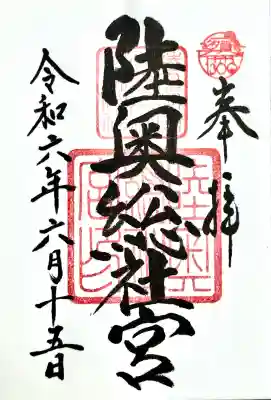 奉拝
陸奥総社宮
令和六年六月十五日